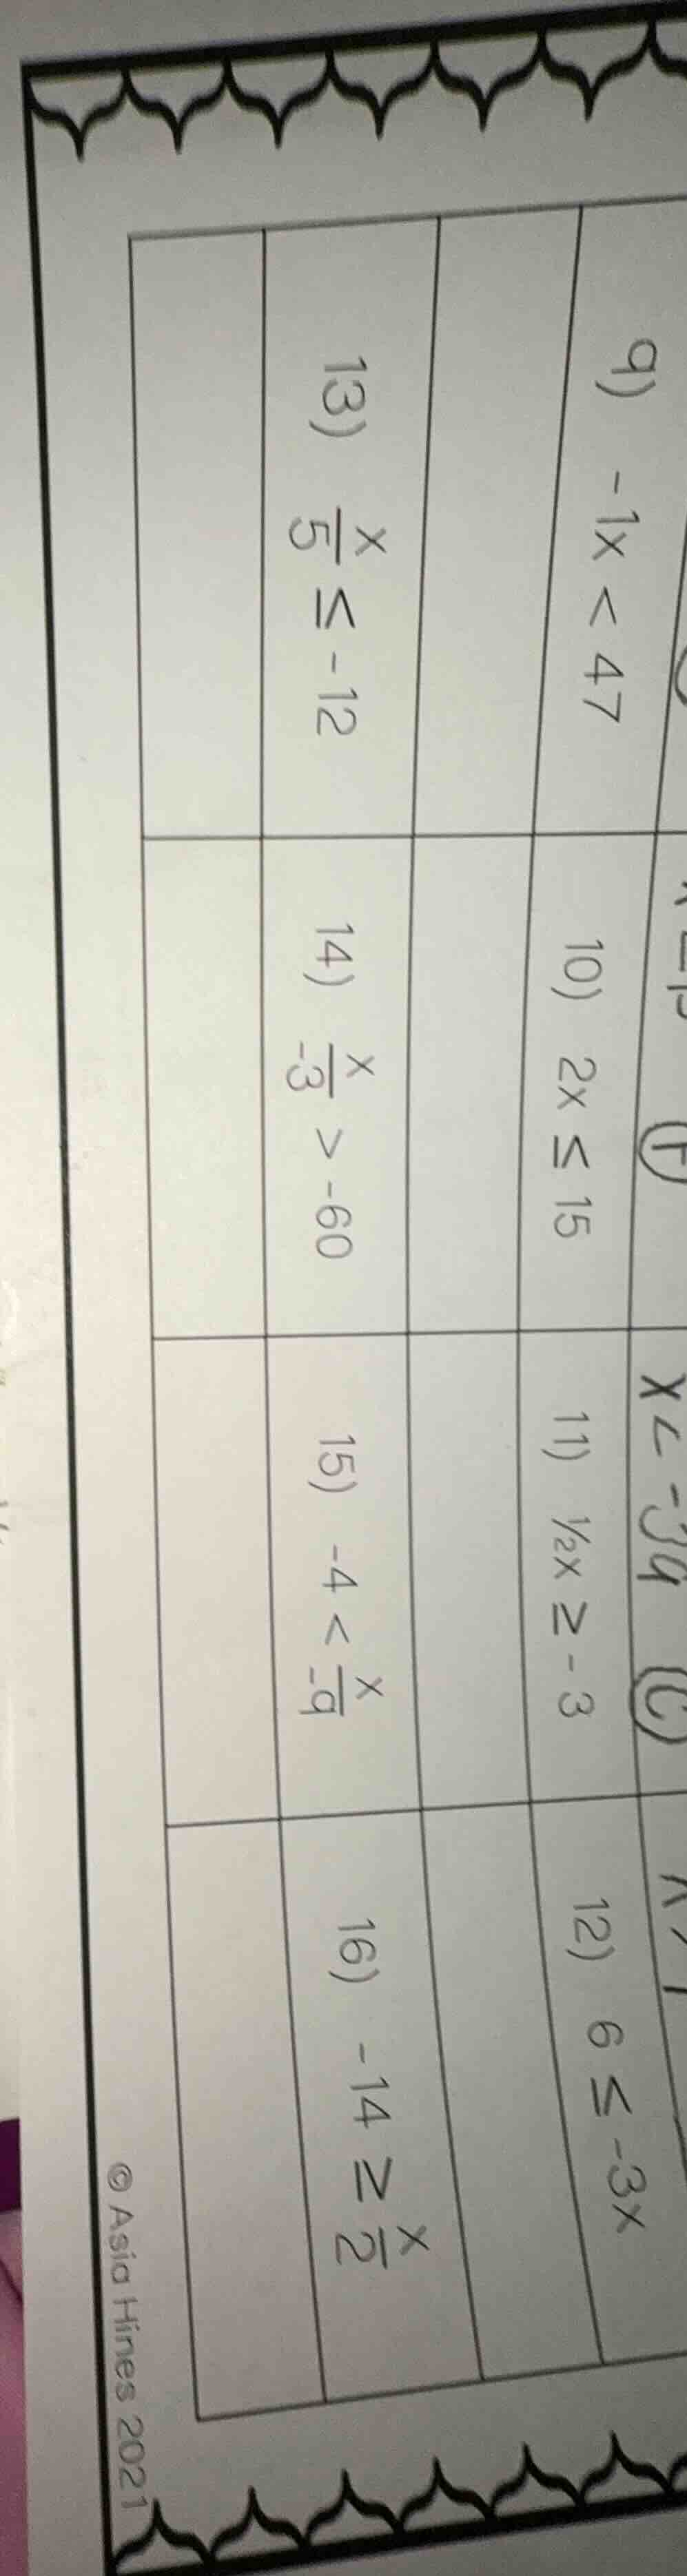 x < -34 Ⓒ
9) -1x < 47
10) 2x ≤ 15
11) ½x ≥ -3
12) 6 ≤ -3x
13) x/5 ≤ -12
14) x/-3 > -60
15) -4 < x/-9
16) -14 ≥ x/2
© Asia Hines 2021